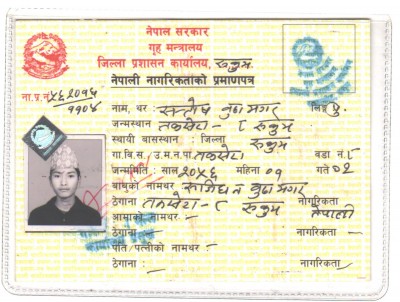 नेपाल सरकार
गृह मन्त्रालय
जिल्ला प्रशासन कार्यालय, रुकुम
नेपाली नागरिकताको प्रमाणपत्र
ना.प्र.नं ५६२०१५
११०४
नाम, थर : सन्तोष बुढा मगर लिङ्ग पु.
जन्मस्थान तकसेरा - ८ रुकुम
स्थायी बासस्थान : जिल्ला रुकुम
गा.बि.स. उ.म.न.पा. तकसेरा वडा नं. ८
जन्ममिति : साल २०५६ महिना ०१ गते ०२
बाबुको नामथर : बुढा मगर
ठेगाना तकसेरा - ८ रुकुम नागरिकता नेपाली
आमाको नामथर :-
ठेगाना :- नागरिकता -
पति/पत्नीको नामथर :-
ठेगाना : नागरिकता